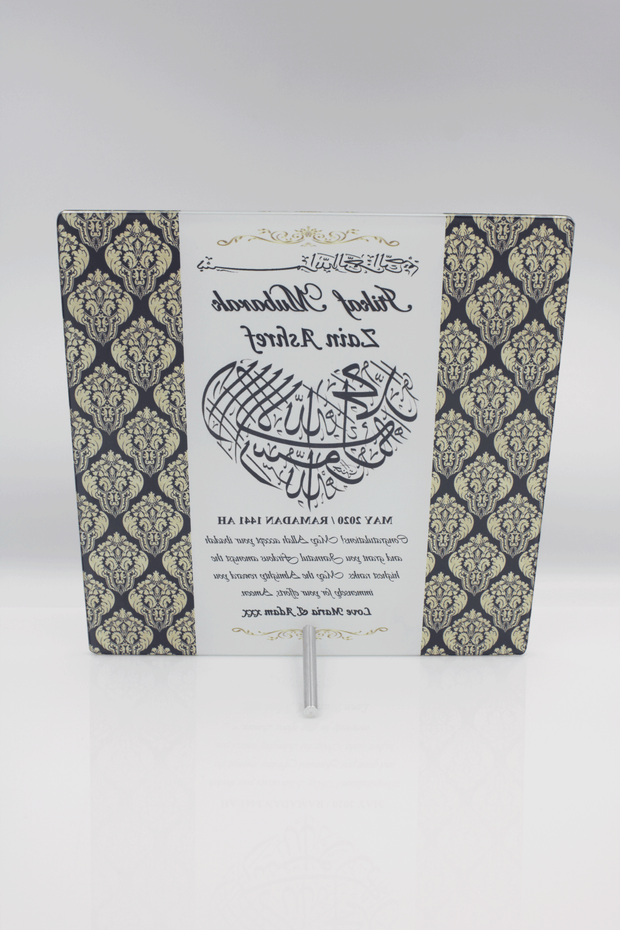 بسم الله الرحمن الرحيم
Itikaf Mubarak
Zain Ashref
لا إله إلا الله محمد رسول الله
MAY 2020 / RAMADAN 1441 AH
Congratulations! May Allah accept your ibadah
and grant you Jannatul Firdous amongst the
highest ranks. May the Almighty reward you
immensely for your efforts, Ameen
Love Maria & Adam xxx